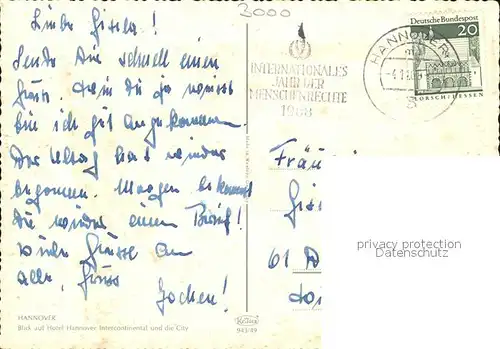 Liebe Gisela!
Sende Dir schnell einen
Gruss.
bin ich gut angekommen
Der Alltag hat wieder
begonnen. Morgen bekommst
Du wieder einen Brief!
viele Grüsse an
alle, Gruss
Jochen!
HANNOVER
Blick auf Hotel Hannover Intercontinental und die City
3000
INTERNATIONALES
JAHR DER
MENSCHENRECHTE
1968
HANNOVER
Deutsche Bundespost
20
LORSCH/HESSEN
Fräu
Gis
61 D
privacy protection
Datenschutz
943/49